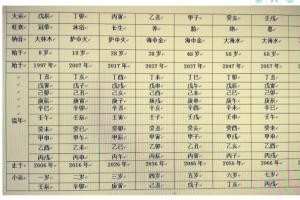 大运 戊辰 丁卯 丙寅 乙丑 甲子 癸亥 壬戌
旺衰 冠带 沐浴 长生 养 胎 绝 墓
纳音 大林木 炉中火 炉中火 海中金 海中金 大海水 大海水
始于 8岁 18岁 28岁 38岁 48岁 58岁 68岁
始于 1997年 2007年 2017年 2027年 2037年 2047年 2057年
流年
丁丑 丁亥 丁酉 丁未 丁巳 丁卯 丁丑
戊寅 戊子 戊戌 戊申 戊午 戊辰 戊寅
己卯 己丑 己亥 己酉 己未 己巳 己卯
庚辰 庚寅 庚子 庚戌 庚申 庚午 庚辰
辛巳 辛卯 辛丑 辛亥 辛酉 辛未 辛巳
壬午 壬辰 壬寅 壬子 壬戌 壬申 壬午
癸未 癸巳 癸卯 癸丑 癸亥 癸酉 癸未
甲申 甲午 甲辰 甲寅 甲子 甲戌 甲申
乙酉 乙未 乙巳 乙卯 乙丑 乙亥 乙酉
丙戌 丙申 丙午 丙辰 丙寅 丙子 丙戌
止于 2006年 2016年 2026年 2036年 2046年 2056年 2066年
小运 一岁 二岁 三岁 四岁 五岁 六岁 七岁
壬辰 辛卯 庚寅 己丑 戊子 丁亥 丙戌